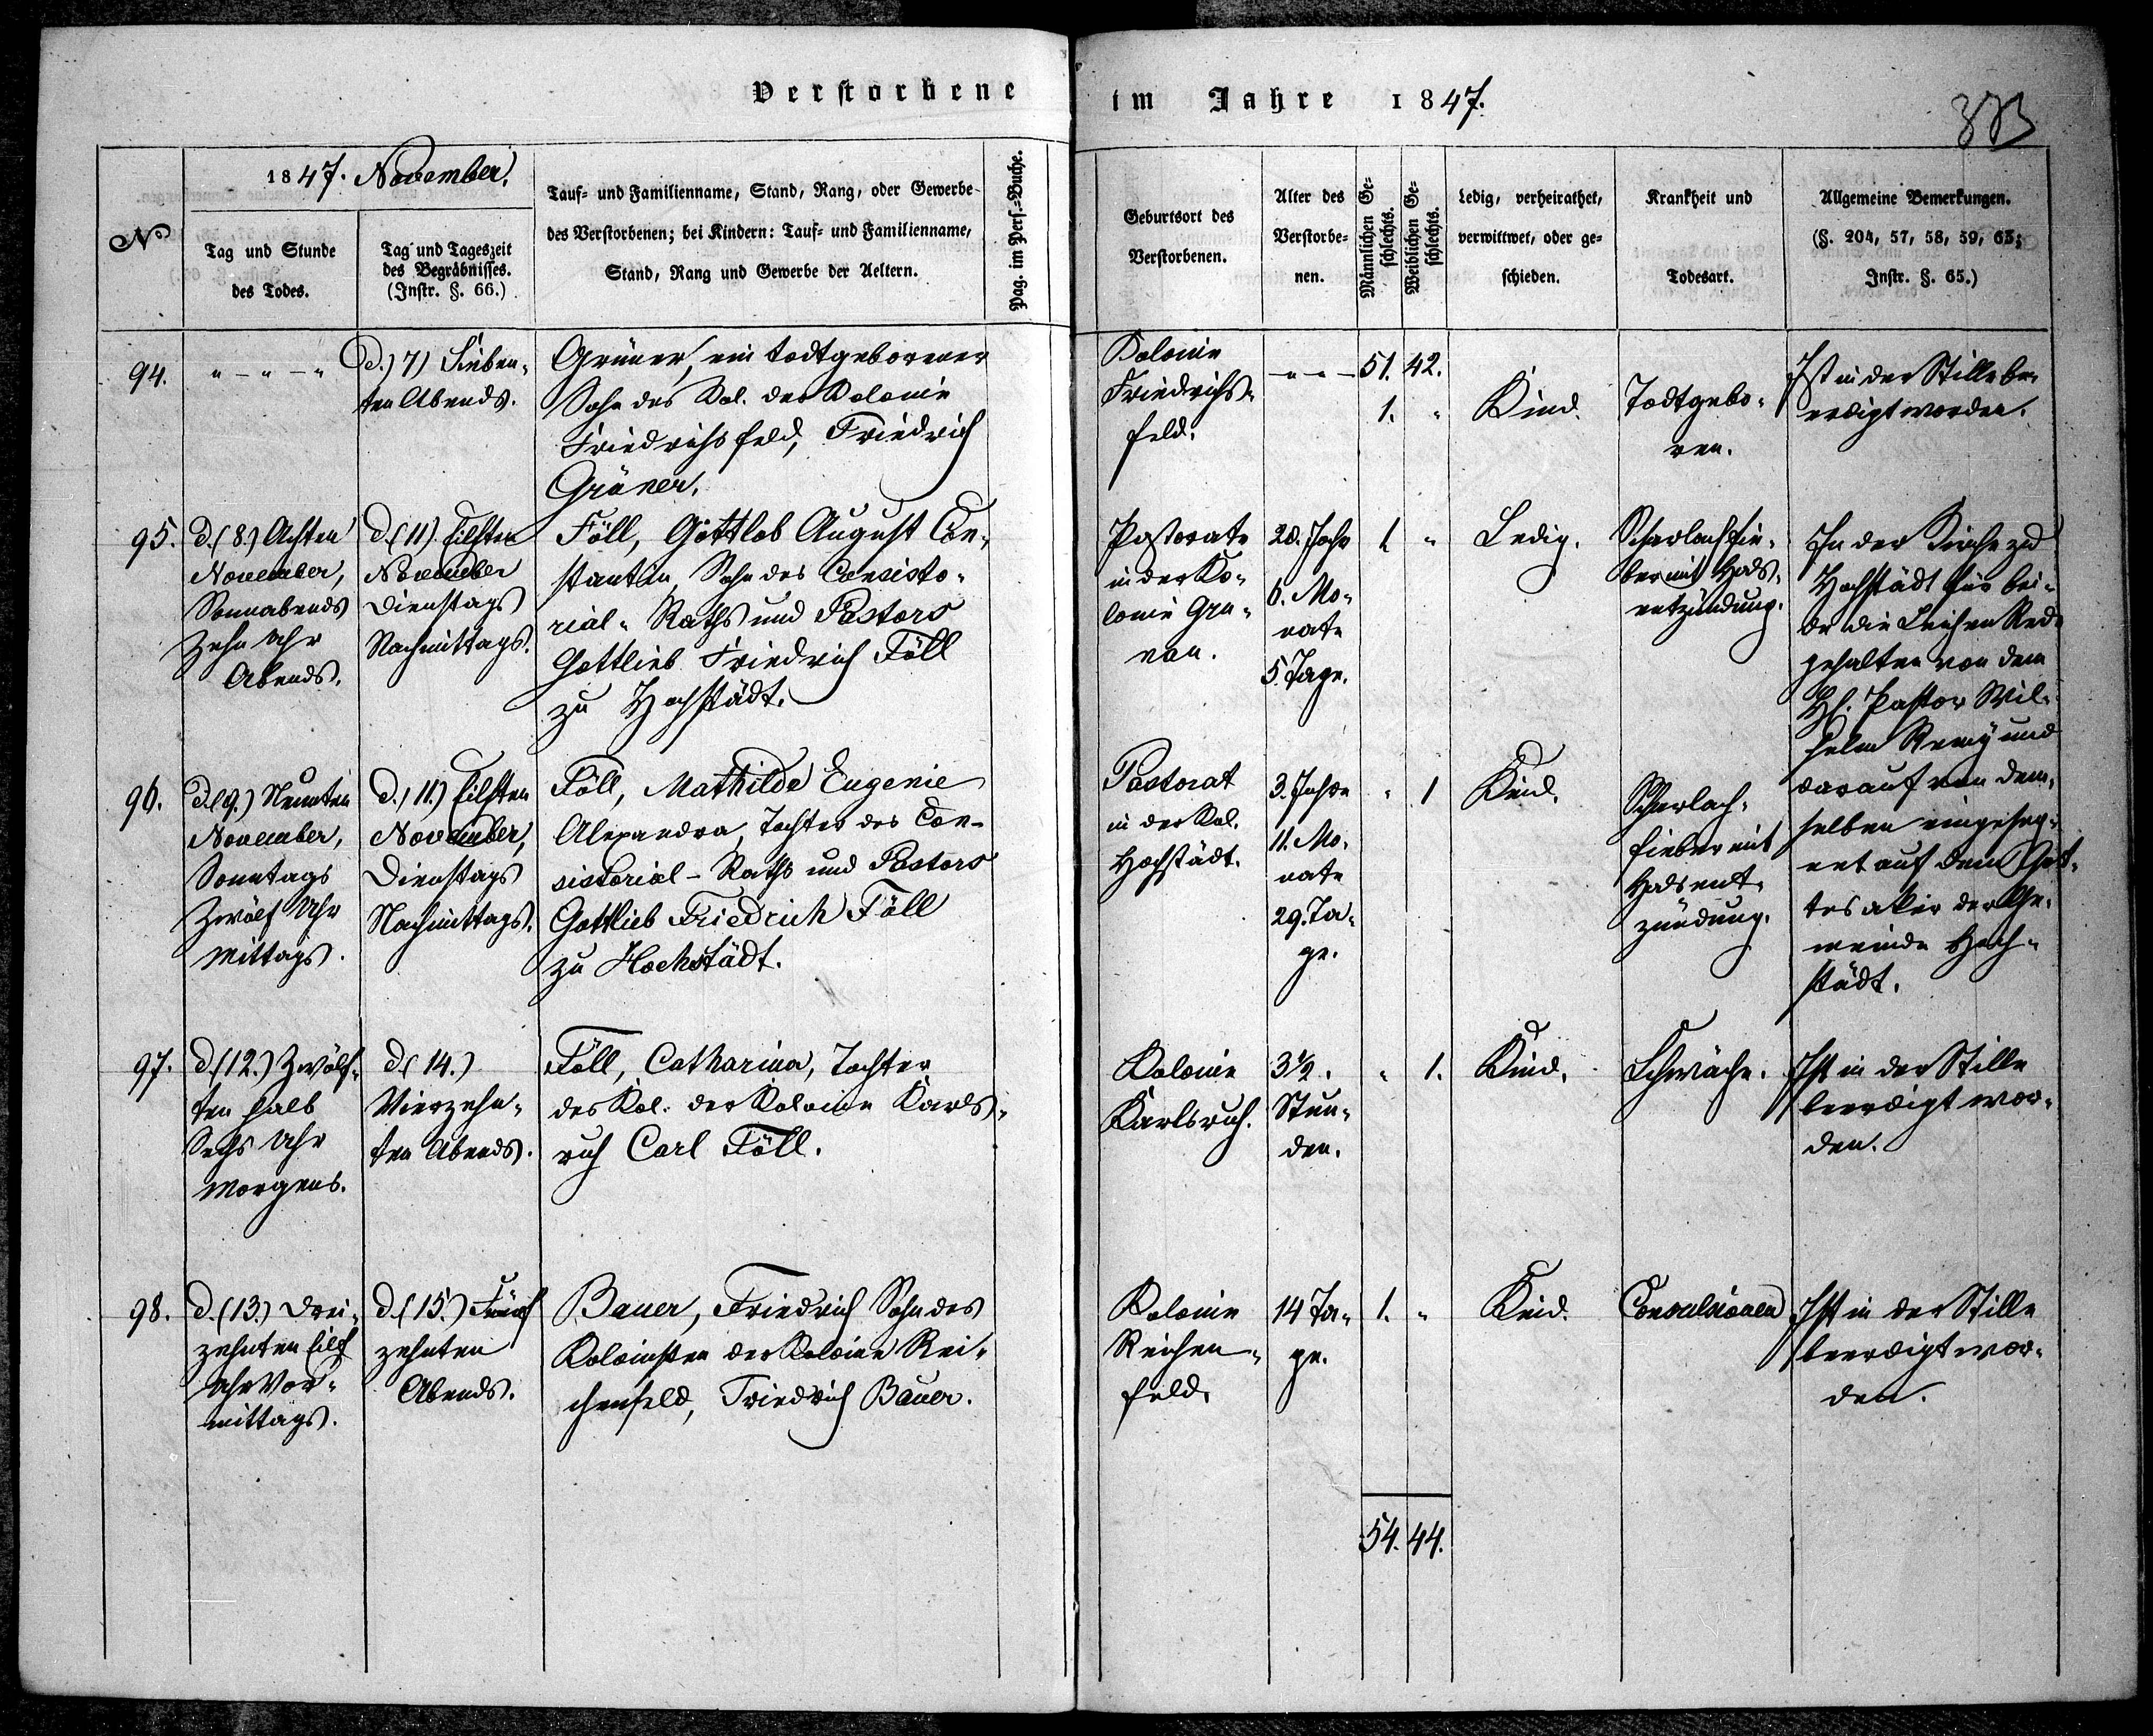 Verstorbene im Jahre 1847.
1847. November.
No
Tag und Stunde
des Todes.
Tag und Tageszeit
des Begräbnisses.
(Instr. §. 66.)
Tauf- und Familienname, Stand, Rang, oder Gewerbe
des Verstorbenen; bei Kindern: Tauf- und Familienname,
Stand, Rang und Gewerbe der Aeltern.
Pag. im Pers.-Buche.
Geburtsort des
Verstorbenen.
Alter des
Verstorbe-
nen.
Männlichen Ge-
schlechts.
Weiblichen Ge-
schlechts.
Ledig, verheirathet,
verwittwet, oder ge-
schieden.
Krankheit und
Todesart.
Allgemeine Bemerkungen.
(§. 204, 57, 58, 59, 63;
Instr. §. 65.)
94.
" - " - "
d. 7) Sieben-
ten Abends.
Grüner, ein todtgeborener
Sohn des Kol. der Kolonie
Friedrichsfeld, Friedrich
Grüner.
Kolonie
Friedrichs-
feld.
- " - " -
51. 42.
1. "
Kind.
Todtgebo-
ren.
Ist in der Stille be-
erdigt worden.
95.
d. (8.) Achten
November,
Sonnabends
Zehn Uhr
Abends.
d. (11). Eilften
November
Dienstags
Nachmittags.
Föll, Gottlob August Con-
stantin, Sohn des Consisto-
rial- Raths und Pastors
Gottlieb Friedrich Föll
zu Hochstädt.
Pastorate
in der Ko-
lonie Gru-
nau.
20. Jahr
6. Mo-
nate
5. Tage.
1. "
Ledig.
Scharlachfie-
ber mit Hals-
entzündung.
In der Kirche zu
Hochstädt für bei-
de die Leichen Rede
gehalten von dem
H. Pastor Wil-
helm Remy und
darauf von dem-
selben eingeseg-
net auf dem Got-
tes aker der Ge-
meinde Hoch-
städt.
96.
d. (9.) Neunten
November,
Sonntags
Zwölf Uhr
Mittags.
d. (11.) Eilften
November,
Dienstags
Nachmittags.
Föll, Mathilde Eugenie
Alexandra, Tochter des Con-
sistorial- Raths und Pastors
Gottlieb Friedrich Föll
zu Hochstädt.
Pastorat
in der Kol.
Hochstädt.
3. Jahre
11. Mo-
nate
29. Ta-
ge.
" 1
Kind.
Scharlach-
fieber mit
Halsent-
zündung.
97.
d. (12.) Zwölf-
ten halb
Sechs Uhr
Morgens.
d. (14.)
Vierzehn-
ten Abends.
Föll, Catharina, Tochter
des Kol. der Kolonie Karls-
ruh Carl Föll.
Kolonie
Karlsruh.
3½.
Stun-
den.
" 1.
Kind.
Schwäche.
Ist in der Stille
beerdigt wor-
den.
98.
d. (13.) Drei-
zehnten Eilf
Uhr Vor-
mittags.
d. (15.) Fünf
zehnten
Abends.
Bauer, Friedrich Sohn des
Kolonisten der Kolonie Rei-
chenfeld, Friedrich Bauer.
Kolonie
Reichen-
feld.
14 Ta-
ge.
1. "
Kind.
Convulsionen
Ist in der Stille
beerdigt wor-
den.
54. 44.